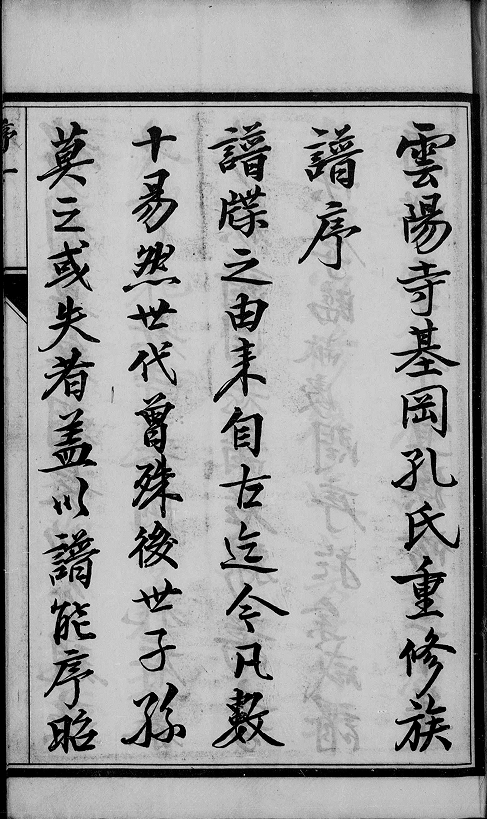 雲陽寺基岡孔氏重修族
譜序
譜牒之由来自古迄今凡數
十易然世代曾殊後世子孫
莫之或失者盖以譜能序昭
序一